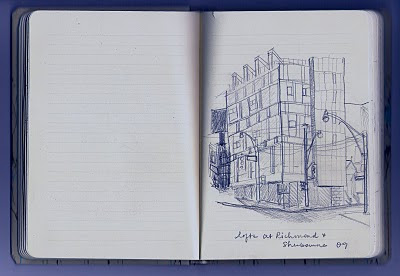 lofts at Richmond &
Sherbourne 09